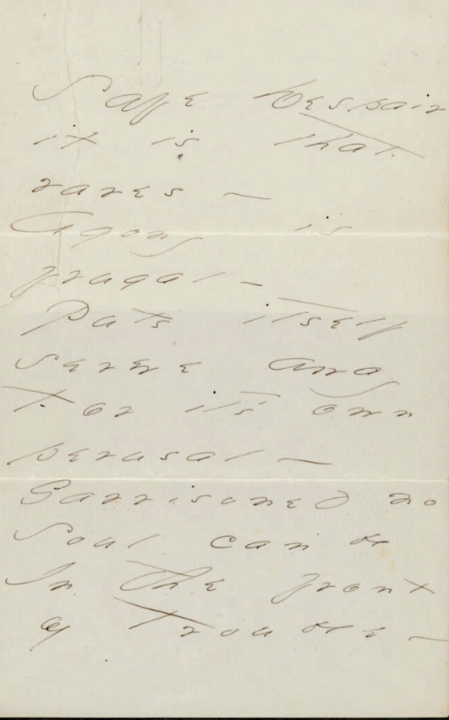 Safe Despair
it is that
raves –
Agony is
frugal –
Puts itself
severe away
For it's own
perusal –
Garrisoned no
Soul can be
In the front
of Trouble –